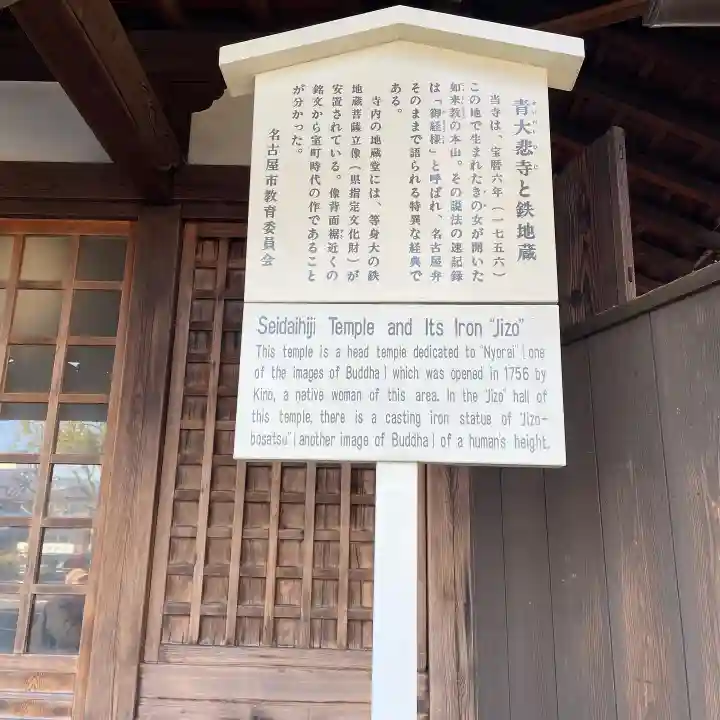 青大悲寺と鉄地蔵
当寺は、宝暦六年（一七五六）
この地で生まれたきの女が開いた
如来教の本山。その説法の速記録
は「御経様」と呼ばれ、名古屋弁
そのままで語られる特異な経典で
ある。
寺内の地蔵堂には、等身大の鉄
地蔵菩薩立像（県指定文化財）が
安置されている。像背面裾近くの
銘文から室町時代の作であること
が分かった。
名古屋市教育委員会
Seidaihiji Temple and Its Iron "Jizo"
This temple is a head temple dedicated to "Nyorai" (one
of the images of Buddha) which was opened in 1756 by
Kino, a native woman of this area. In the "Jizo" hall of
this temple, there is a casting iron statue of "Jizo-
bosatsu" (another image of Buddha) of a human's height.